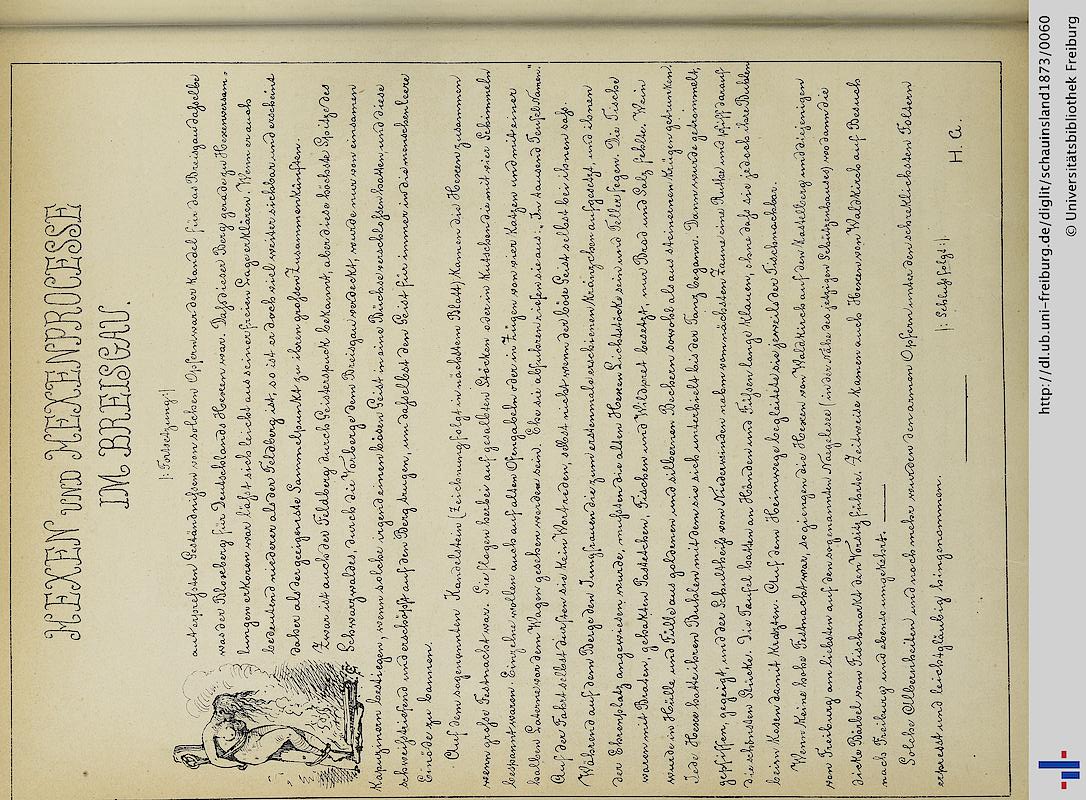 HEXEN UND HEXENPROCESSE
IM BREISGAU.
|: Fortsetzung :|
auterpreßten Geständnißen von solchen Opfern war der Kandel für das Breisgau dasselbe
was der Bloksberg für Deutschlands Hexen war. Daß dieser Berg gerade zu Hexenversam-
lungen erkoren war läßt sich leicht aus seiner freien Lage erklären. Wenn er auch
bedeutend niederer als der Feldberg ist, so ist er doch viel weiter sichbar und erscheint
daher als der geeignete Sammelpunkt zu ihren großen Zusammenkünften.
Zwar ist auch der Feldberg durch Geisterspuck bekannt, aber diese höchste Spitze des
Schwarzwaldes, durch die Vorberge dem Breisgau verdeckt, wurde nur von einsamen
Kapuzinern bestiegen, wenn solche irgend einen bösen Geist in eine Büchse verschloßen hatten, und diese
schweißtriefend und erschöpft auf den Berg trugen, um daselbst den Geist für immer in die menschenleere
Einöde zu bannen.
Auf dem sogenannten Kandelstein (Zeichnung folgt in nächstem Blatt) kamen die Hexen zusammen
wenn große Festnacht war. Sie flogen herbei auf gesalbten Stöcken oder in Kutschen die mit vier Schimmeln
bespannt waren. Einzelne wollen auch auf alten Ofengabeln oder in Zügen von vier Katzen und mit einer
halben Laterne vor dem Wagen gesehen worden sein. Ehe sie abfuhren riefen sie aus: „In tausend Teufel Namen."
Auf der Fahrt selbst durften sie kein Wort reden, selbst nicht wenn der böse Geist selbst bei ihnen saß.
Während auf dem Berge den Jungfrauen die zum erstenmale erschienen Kränzchen aufgesetzt, und ihnen
der Ehrenplatz angewiesen wurde, mußten die alten Hexen Lichtstöcke sein und Teller fegen. Die Tische
waren mit Braten, gebakten Pastetchen, Fischen und Wildpret besetzt, nur Brod und Salz fehlte. Wein
wurde in Hülle und Fülle aus goldenen und silbernen Bechern sowohl als aus steinernen Krügen getrunken.
Jede Hexe hatte ihren Buhlen mit dem sie sich unterhielt bis der Tanz begann. Dann wurde getrommelt,
gepfiffen, gegeigt, und der Schultheiß von Niederwinden nahm vom nächsten Zaune eine Ruthe und pfiff darauf
die schönsten Stücke. Die Teufel hatten an Händen und Füßen lange Klauen, ohne daß sie jedoch ihre Buhlen
beim Kosen damit kratzten. Auf dem Heimwege begleitete sie jeweils der Tischnachbar.
Wenn keine hohe Festnacht war, so giengen die Hexen von Waldkirch auf den Kastelberg und diejenigen
von Freiburg am liebsten auf den sogenannten Nägelesee (in der Nähe des jetzigen Schützenhauses) wo dann die
dicke Bärbel vom Fischmarkt den Vorsitz führte. Zeitweise kamen auch Hexen von Waldkirch auf Besuch
nach Freiburg und ebenso umgekehrt.
Solche Albernheiten und noch mehr wurden den armen Opfern unter den schreklichsten Foltern
erpresst und leichtgläubig hingenommen.
|: Schluß folgt :|
H. A.
http://dl.ub.uni-freiburg.de/diglit/schauinsland1873/0060
© Universitätsbibliothek Freiburg